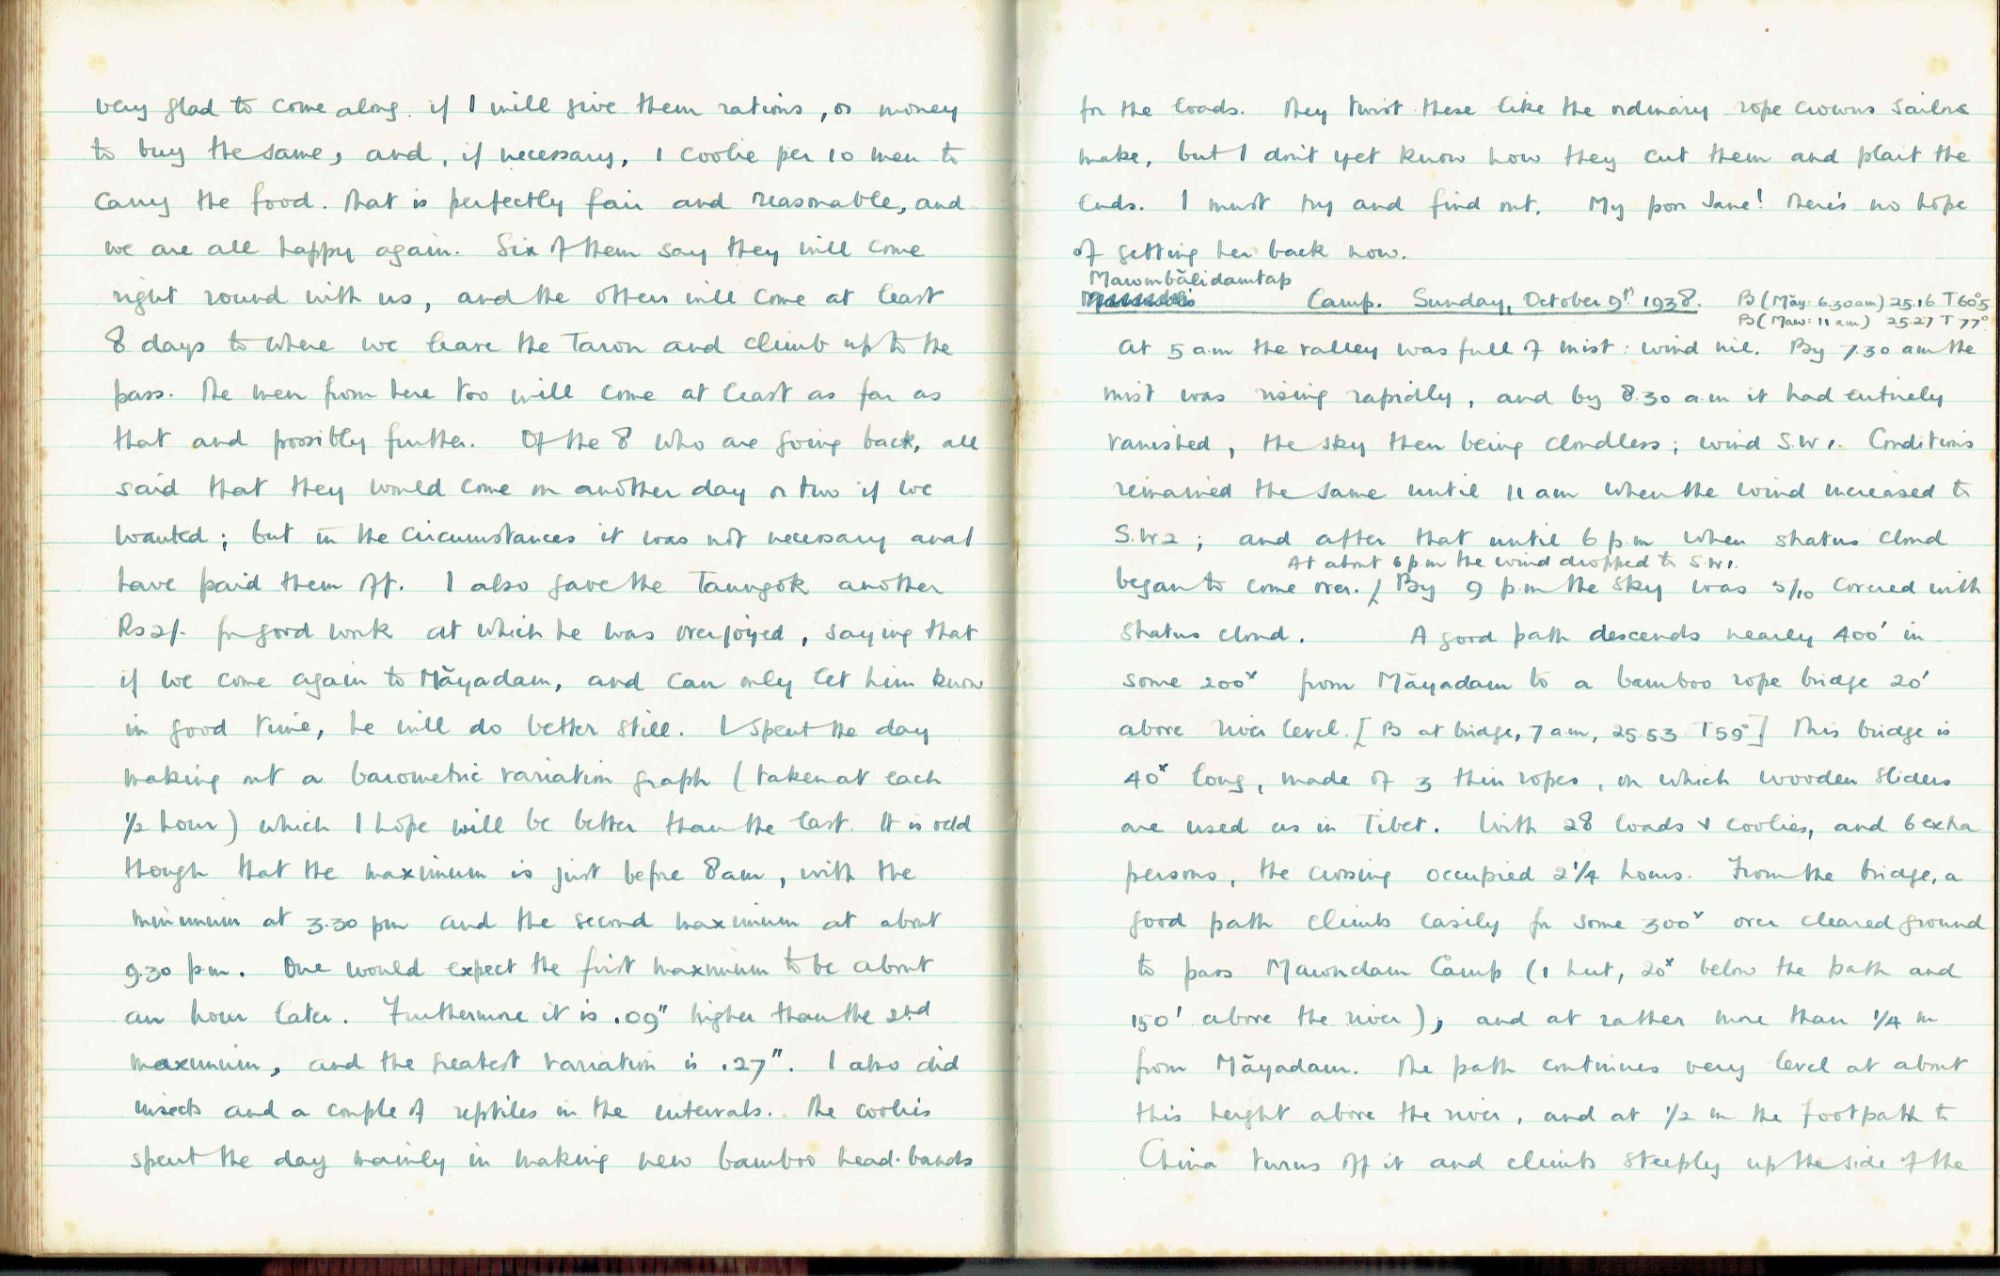 very glad to come along if I will give them rations, or money
to buy the same, and, if necessary, 1 coolie per 10 men to
carry the food. That is perfectly fair and reasonable, and
we are all happy again. Six of them say they will come
right round with us, and the others will come at least
8 days to where we leave the Taron and climb up to the
pass. The men from here too will come at least as far as
that and possibly further. Of the 8 who are going back, all
said that they would come on another day or two if we
wanted; but in the circumstances it was not necessary and I
have paid them off. I also gave the Taungok another
Rs 2/- for good work at which he was overjoyed, saying that
if we come again to Māyadam, and can only let him know
in good time, he will do better still. I spent the day
making out a barometric variation graph (taken at each
1/2 hour) which I hope will be better than the last. It is odd
though that the maximum is just before 8 am, with the
minimum at 3.30 pm and the second maximum at about
9.30 p.m. One would expect the first maximum to be about
an hour later. Furthermore it is .09" higher than the 2nd
maximum, and the greatest variation is .27". I also did
insects and a couple of reptiles in the intervals. The coolies
spent the day mainly in making new bamboo head-bands
for the loads. They twist these like the ordinary rope crowns sailors
make, but I don't yet know how they cut them and plait the
ends. I must try and find out. My poor Jane! There's no hope
of getting her back now.
Mawmbālidamtap
Camp. Sunday, October 9th 1938. B (Māy: 6.30am) 25.16 T 60°5
B (Maw: 11 am) 25.27 T 77°
At 5 a.m the valley was full of mist: wind nil. By 7.30 am the
mist was rising rapidly, and by 8.30 a.m it had entirely
vanished, the sky then being cloudless; wind S.W 1. Conditions
remained the same until 11 am when the wind increased to
S.W 2; and after that until 6 p.m when stratus cloud
At about 6 pm the wind dropped to S.W 1.
began to come over. / By 9 p.m the sky was 5/10 covered with
stratus cloud. A good path descends nearly 400' in
some 200x from Māyadam to a bamboo rope bridge 20'
above river level. [B at bridge, 7 am, 25.53 T 59°] This bridge is
40x long, made of 3 thin ropes, on which wooden sliders
are used as in Tibet. With 28 loads & coolies, and 6 extra
persons, the crossing occupied 2 1/4 hours. From the bridge, a
good path climbs easily for some 300x over cleared ground
to pass Mawndam Camp (1 hut, 20x below the path and
150' above the river), and at rather more than 1/4 m
from Māyadam. The path continues very level at about
this height above the river, and at 1/2 m the footpath to
China turns off it and climbs steeply up the side of the